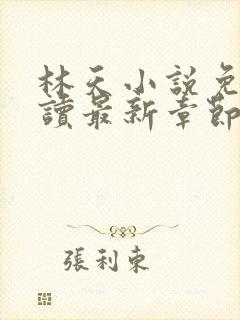 林天小說免
讀最新章節
張利東